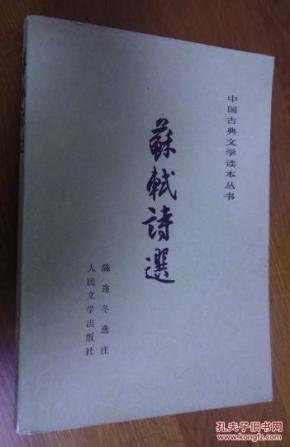 中国古典文学读本丛书
蘇軾詩選
陈迩冬选注
人民文学出版社
孔夫子旧书网